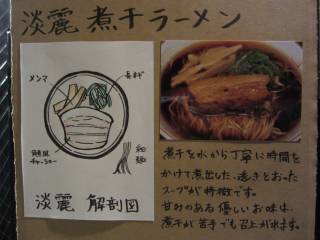 淡麗 煮干ラーメン
メンマ
長ネギ
チャーシュー
細麺
淡麗 解剖図
煮干を水から丁寧に時間を
かけて煮出した、透きとおった
スープが特徴です。
甘みのある優しいお味は
煮干が苦手でも召上が木ます。